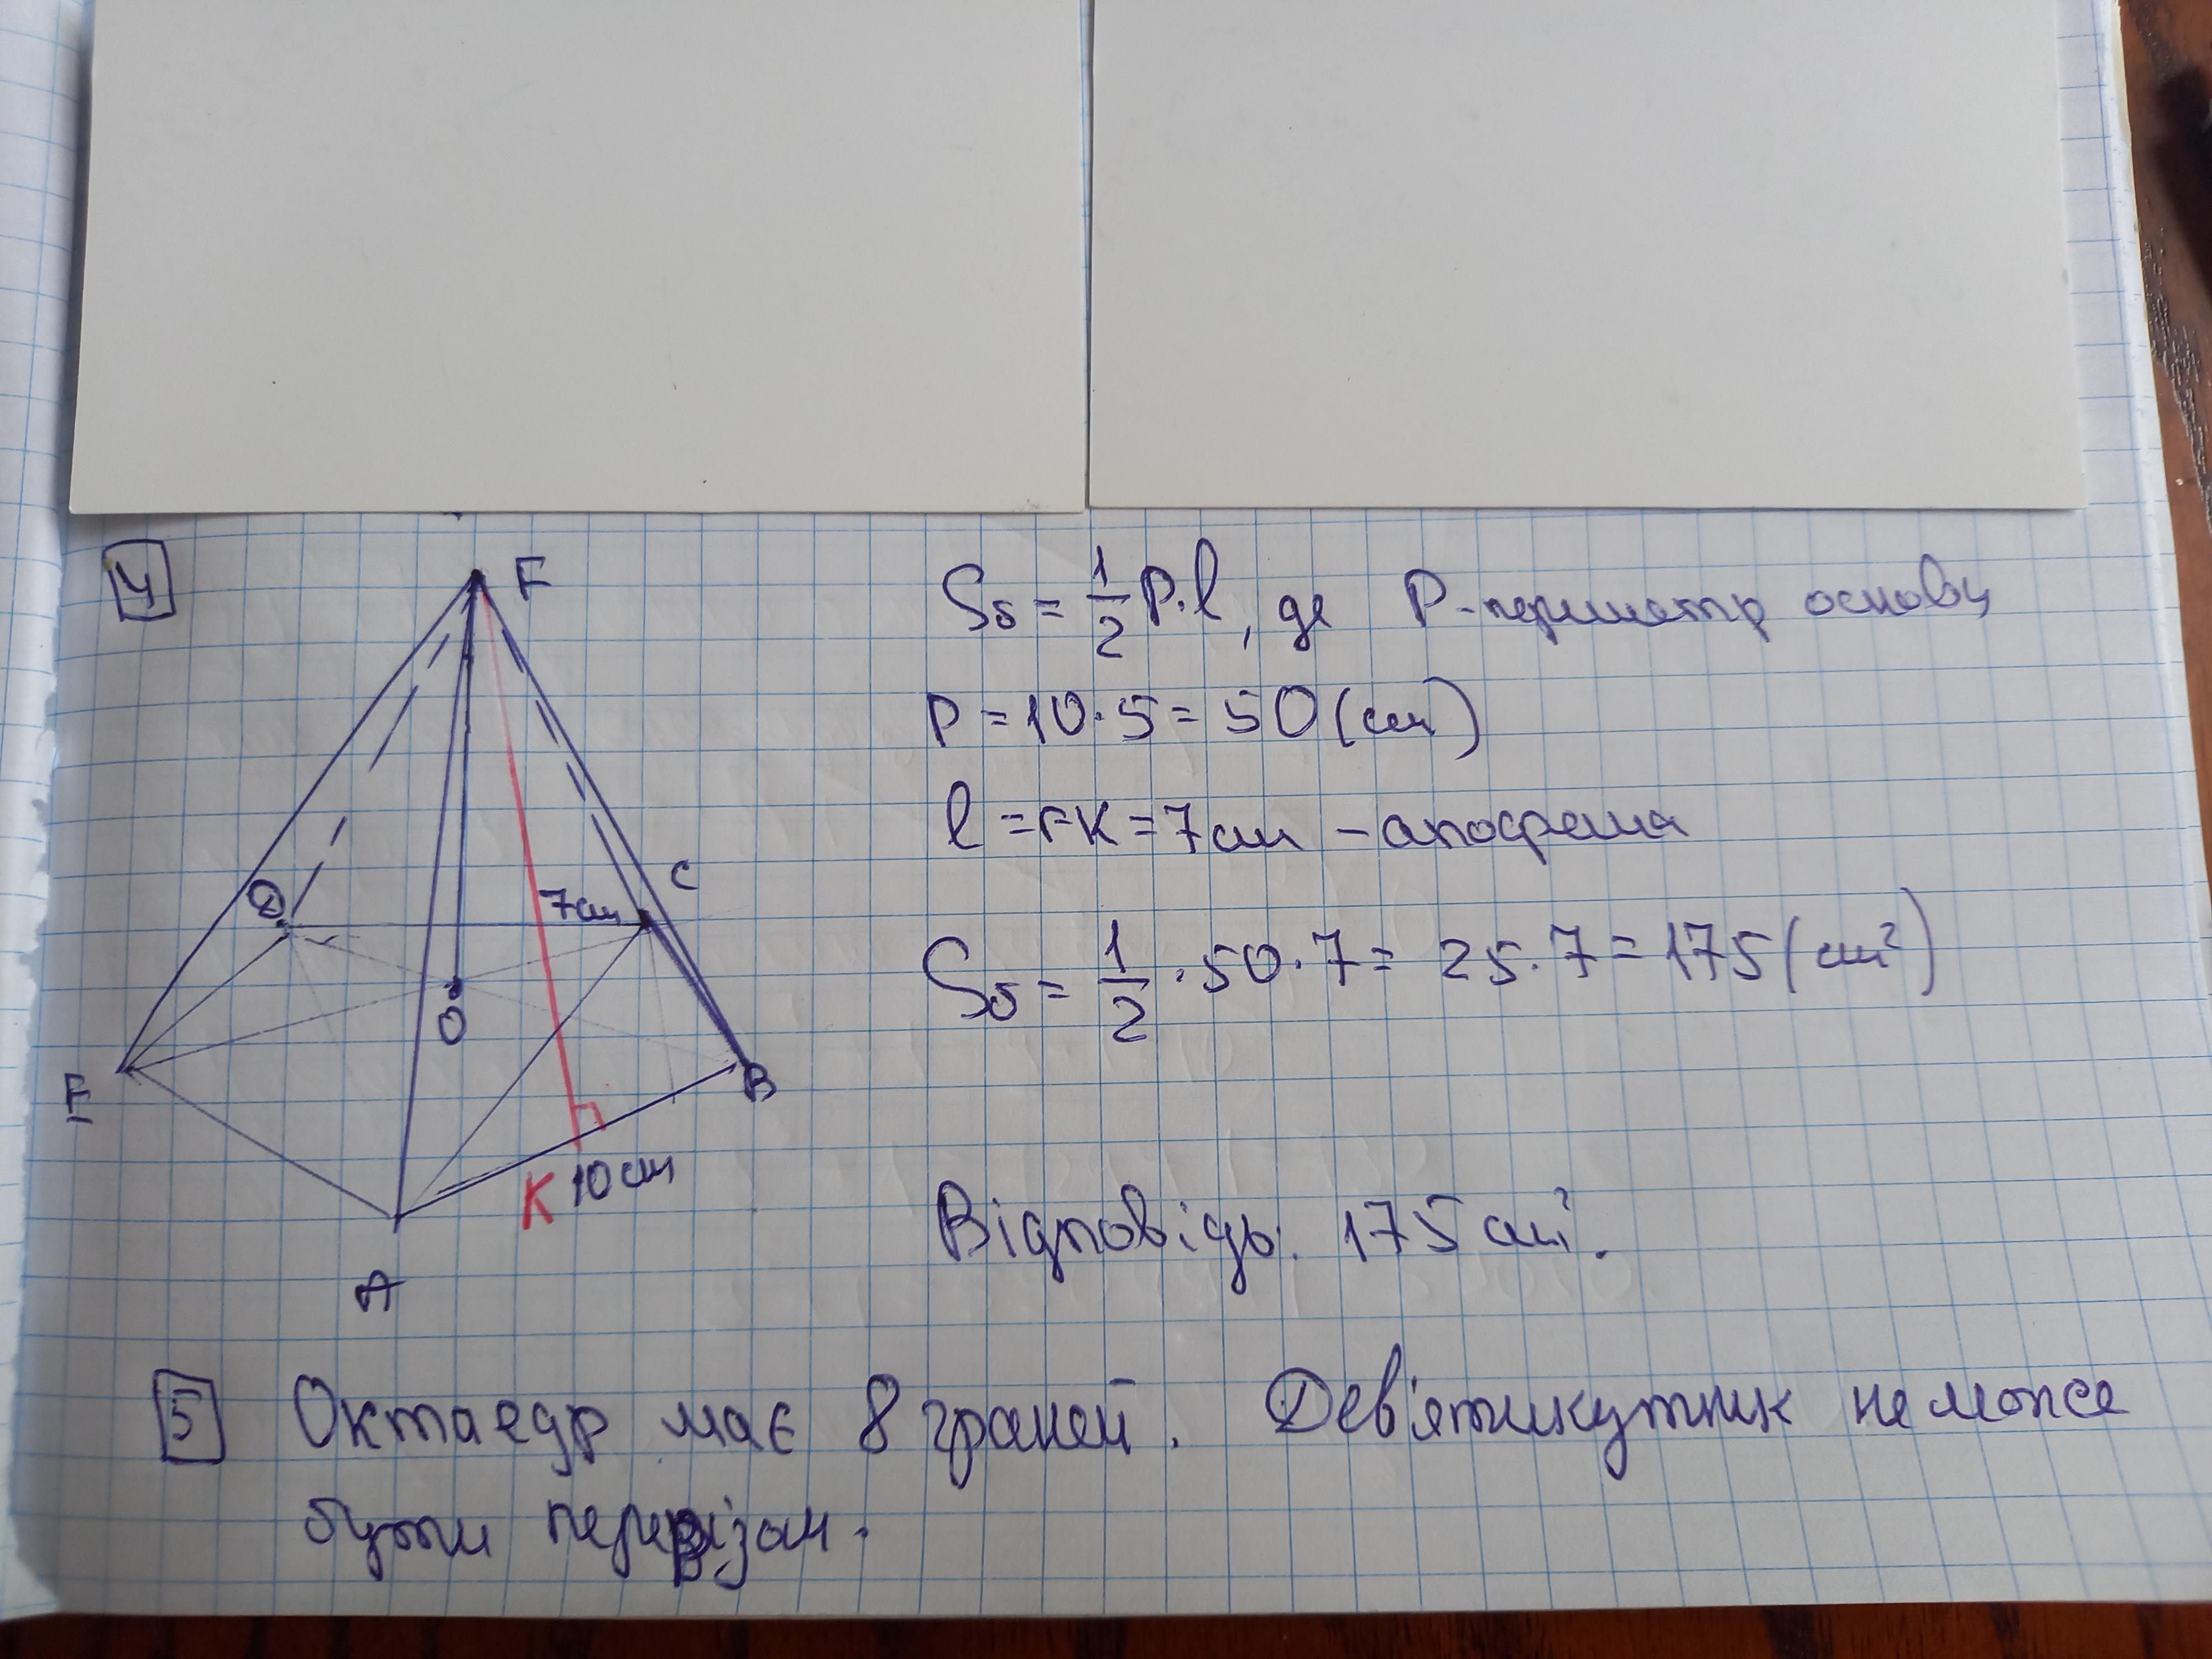 4
F
D
7см
C
O
E
B
K 10см
A
Sб = 1/2 P·l, де P-периметр основи
P = 10·5 = 50 (см)
l = FK = 7см - апофема
Sб = 1/2 · 50 · 7 = 25 · 7 = 175 (см²)
Відповідь: 175 см².
5 Октаедр має 8 граней. Дев'ятикутник не може
бути перерізом.